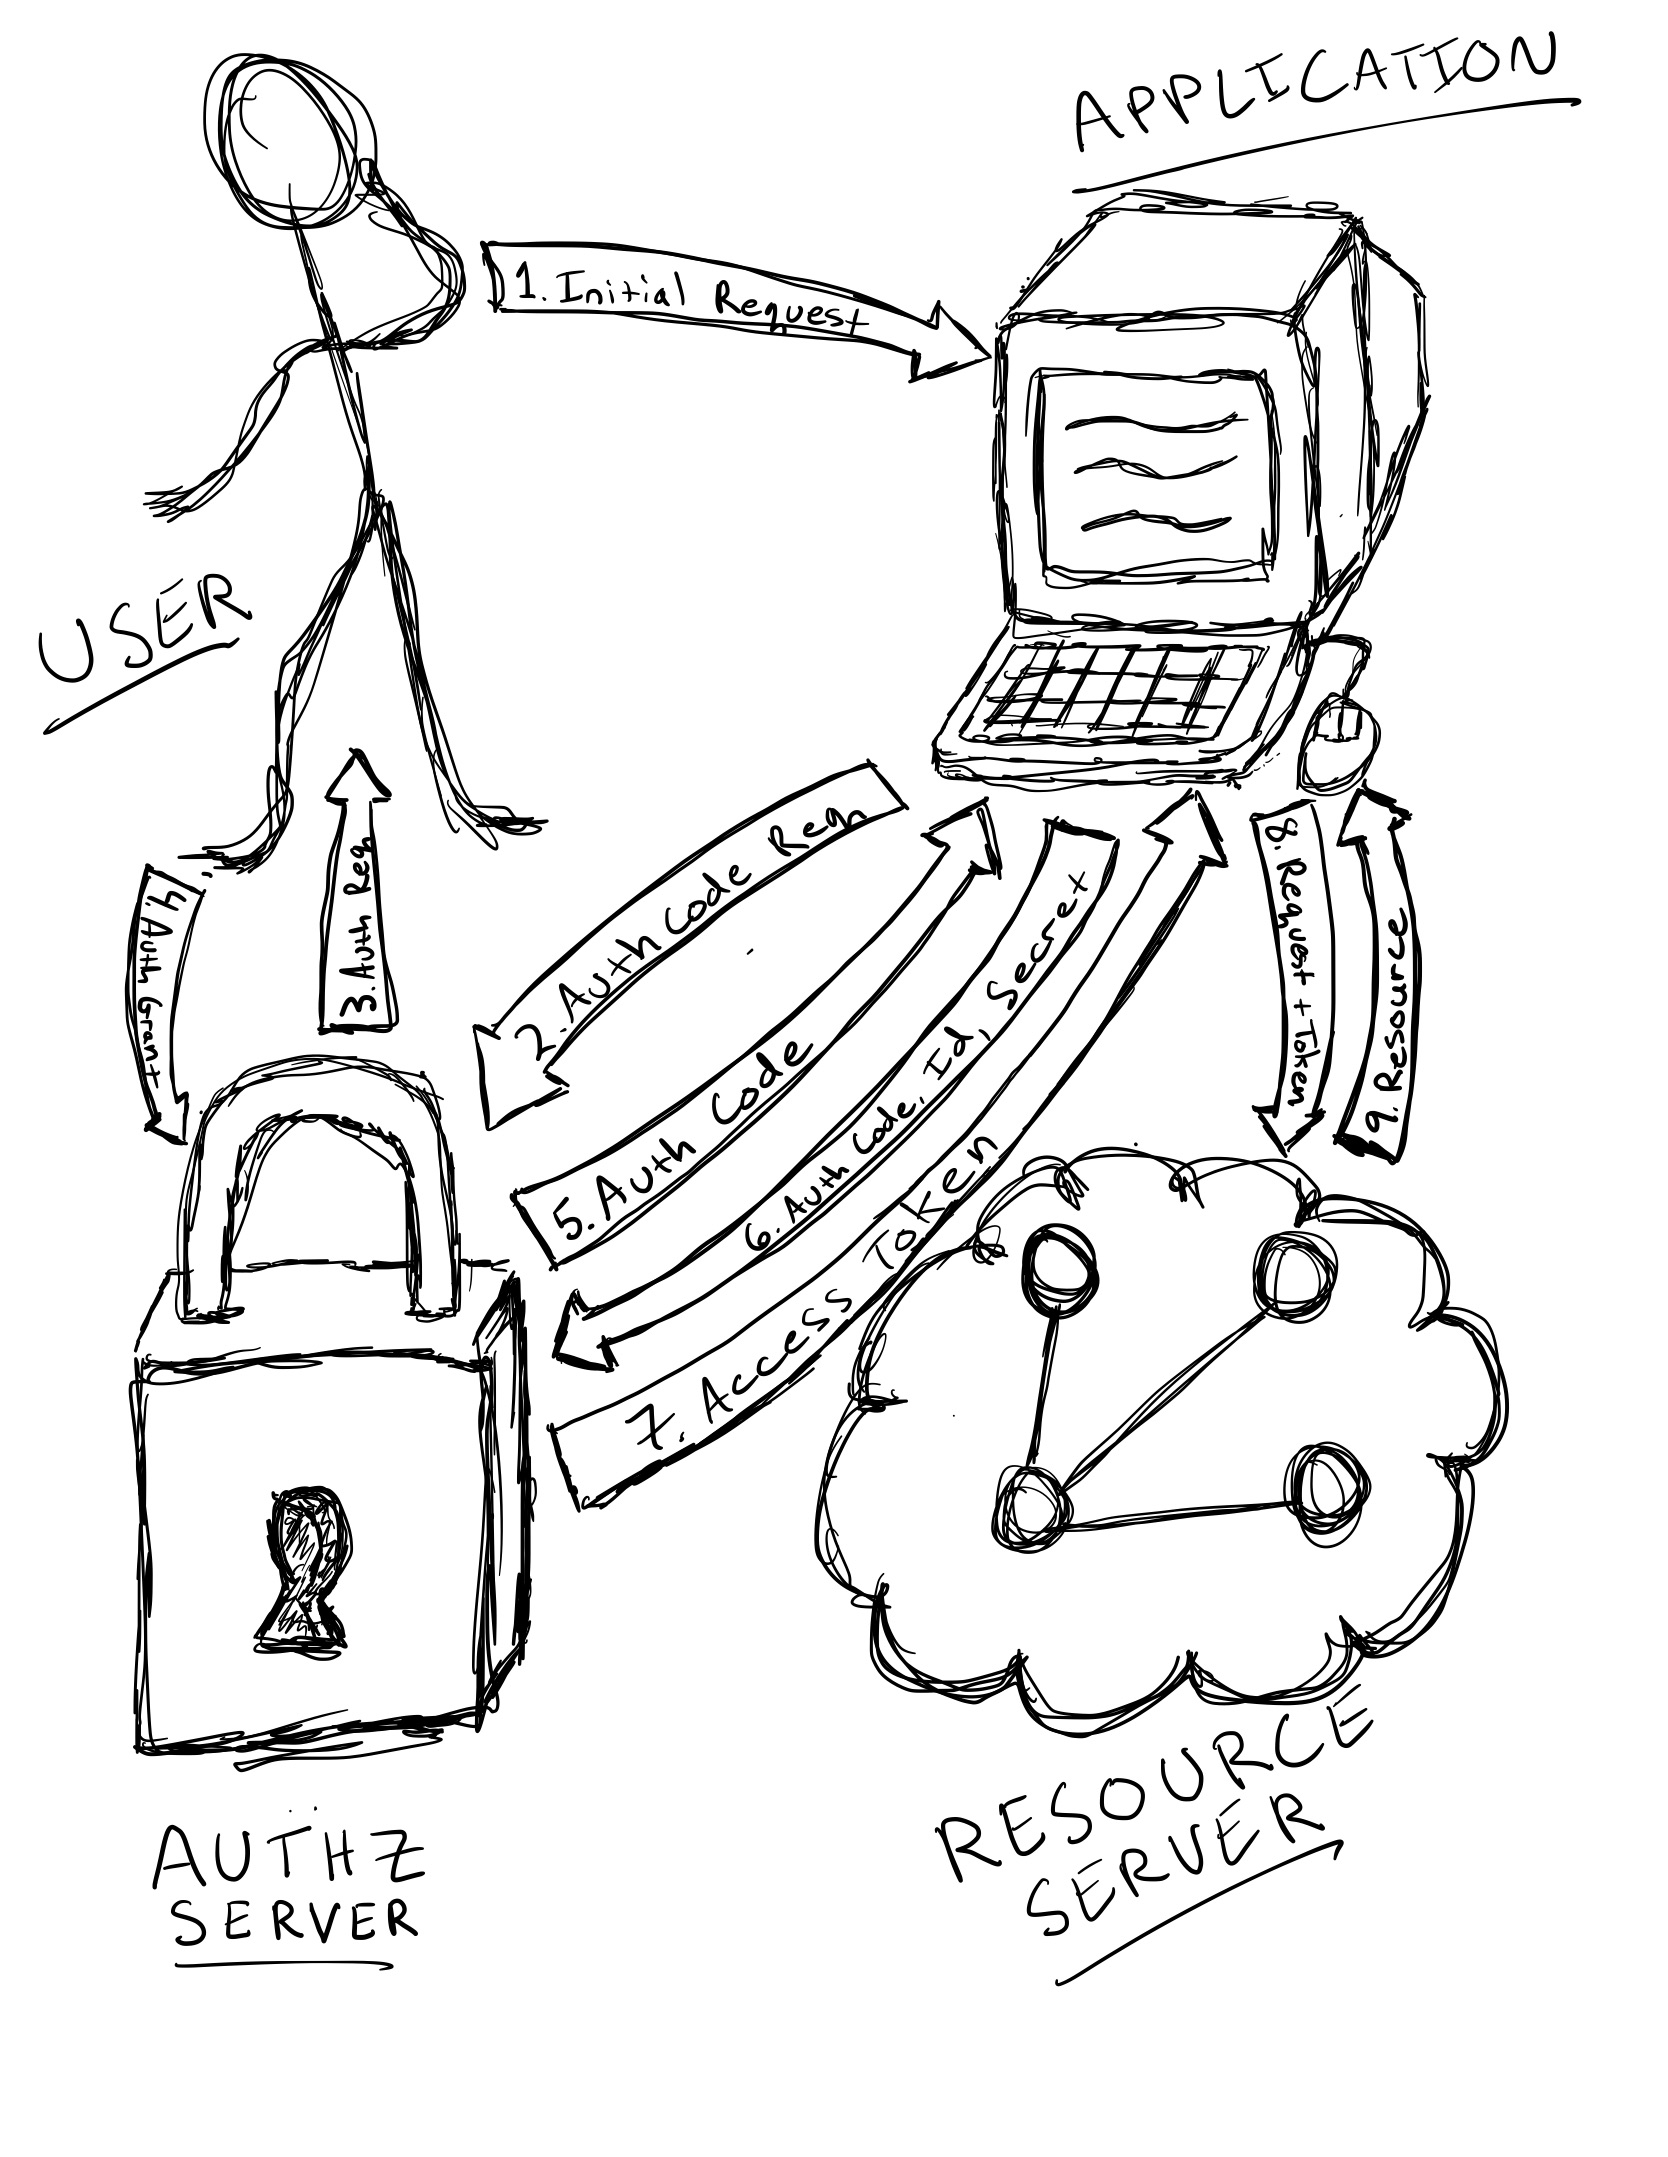 APPLICATION
1. Initial Request
USER
2. Auth Code Reqn
3. Auth Req
4. Auth Grant
5. Auth Code
6. Auth Code, Id, Secret
7. Access Token
8. Request + Token
9. Resource
AUTHZ
SERVER
RESOURCE
SERVER